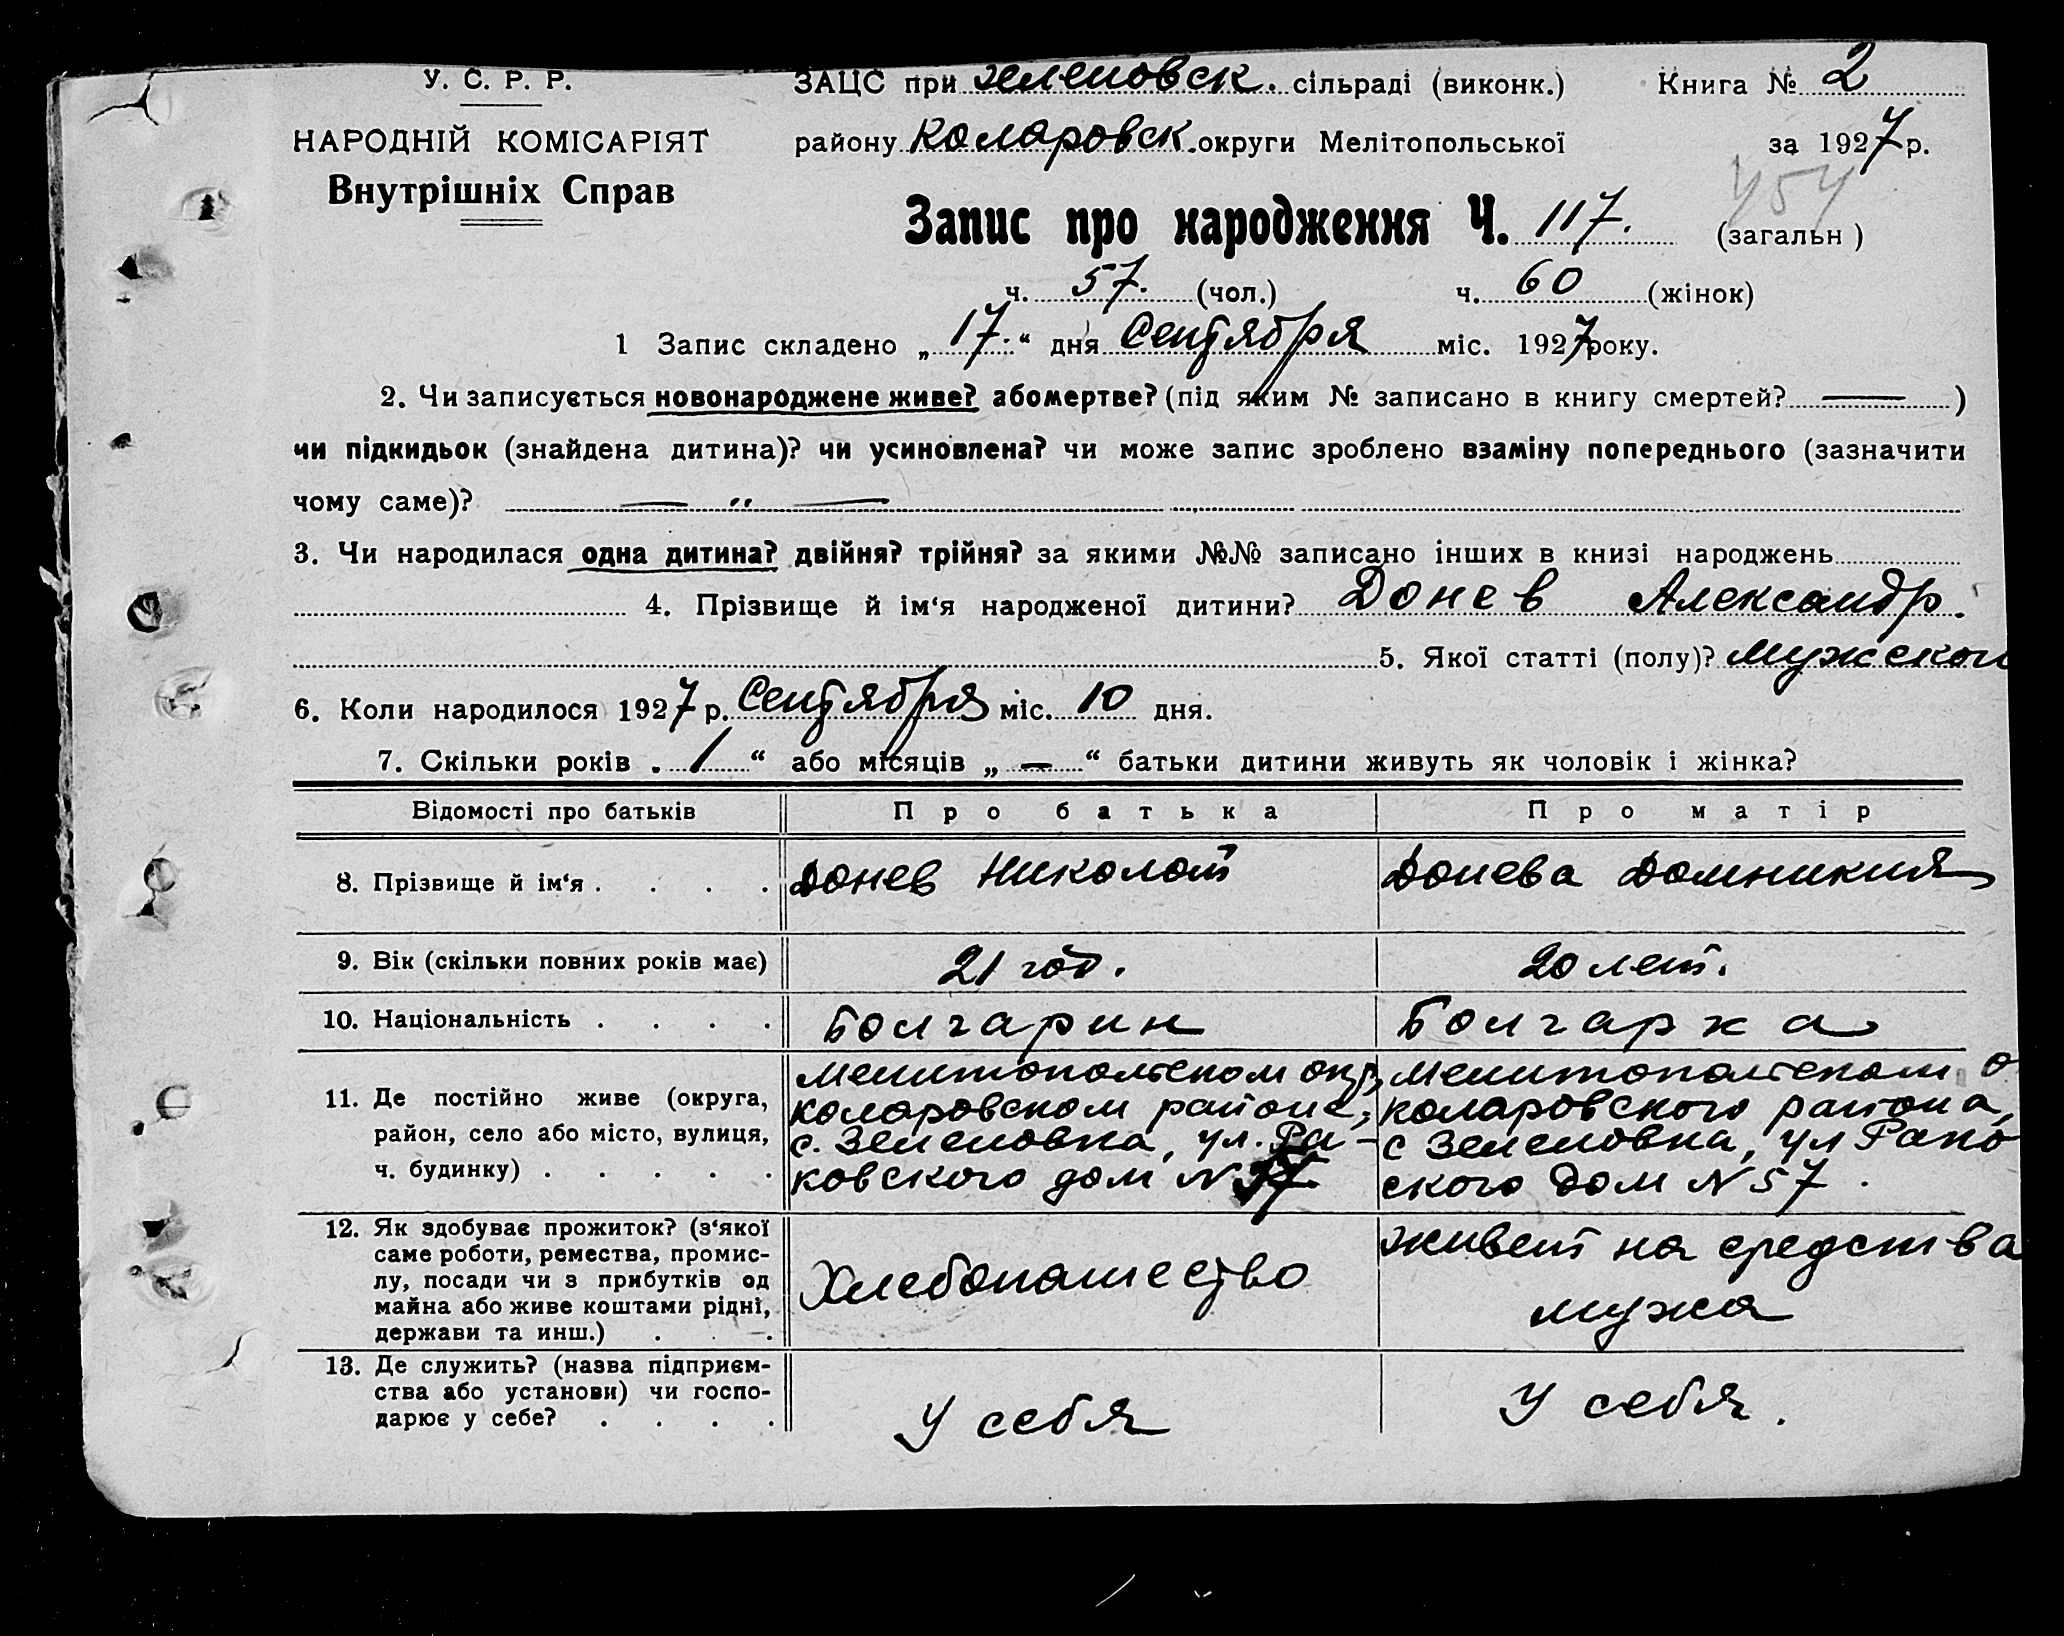 У. С. Р. Р.
НАРОДНІЙ КОМІСАРІЯТ
Внутрішніх Справ
ЗАЦС при Зеленовск. сільраді (виконк.) Книга № 2
району Коларовск. округи Мелітопольської за 1927 р.
Запис про народження Ч. 117. (загальн)
ч. 57. (чол.) ч. 60 (жінок)
1 Запис складено „17." дня Сентября міс. 1927 року.
2. Чи записується новонароджене живе? або мертве? (під яким № записано в книгу смертей? — )
чи підкидьок (знайдена дитина)? чи усиновлена? чи може запис зроблено взаміну попереднього (зазначити
чому саме)? — „ —
3. Чи народилася одна дитина? двійня? трійня? за якими №№ записано інших в книзі народжень
4. Прізвище й ім'я народженої дитини? Донев Александр.
5. Якої статті (полу)? мужской
6. Коли народилося 1927 р. Сентября міс. 10 дня.
7. Скільки років „1" або місяців „—" батьки дитини живуть як чоловік і жінка?
Відомості про батьків Про батька Про матір
8. Прізвище й ім'я . . . . Донев Николай Донева Домникия
9. Вік (скільки повних років має) 21 год. 20 лет.
10. Національність . . . . Болгарин Болгарка
11. Де постійно живе (округа,
район, село або місто, вулиця,
ч. будинку) . . . . .
Мелитопольском окр,
Коларовском районе,
с. Зеленовка, ул. Ра-
ковского дом N 57
Мелитопольском о
Коларовского района,
с Зеленовка, ул Рако
ского Дом N 57.
12. Як здобуває прожиток? (з'якої
саме роботи, ремества, промис-
лу, посади чи з прибутків од
майна або живе коштами рідні,
держави та инш.) . . .
Хлебопашество
живет на средства
мужа
13. Де служить? (назва підприєм-
ства або установи) чи госпо-
дарює у себе? . . . .
У себя
У себя.